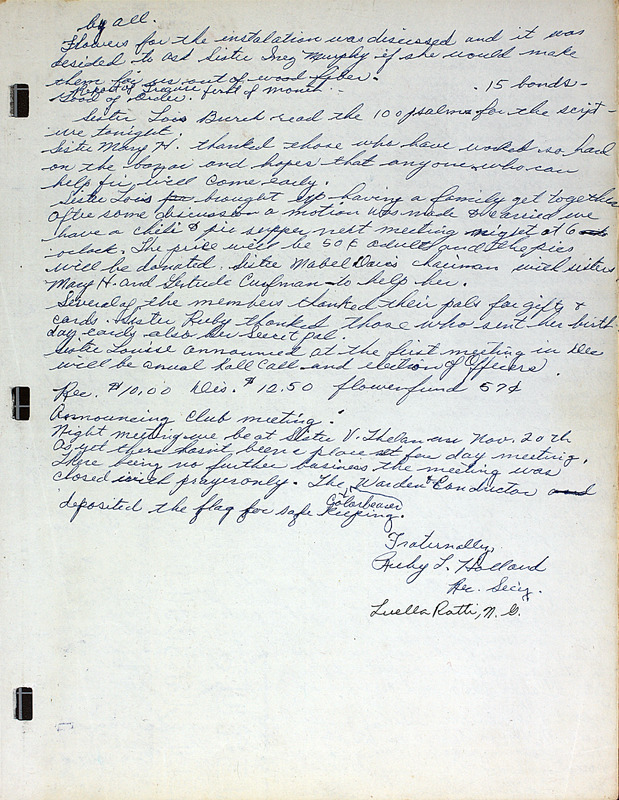 by all.
Flowers for the instalation was discussed and it was
desided to ask Sister Inez Murphy if she would make
them for us out of wood fiber.
Report of Treasure first of month - 15 bonds -
Good of Order.
Sister Lois Burch read the 100 psalms for the script-
ure tonight.
Sister Mary H. thanked those who have worked so hard
on the bazai and hopes that anyone who can
help fix will come early.
Sister Lois for brought up having a family get together
after some discussion a motion was made & carried we
have a chili & pie supper next meeting night at 6
o'clock. The price will be 50¢ adult and the pies
will be donated. Sister Mabel Davis chairman with sisters
Mary H. and Gertrude Curfman to help her.
Several of the members thanked their pals for gifts &
cards. Sister Ruby thanked those who sent her birth
day cards also her Secret pal.
Sister Louise announced at the first meeting in Dec
will be anual Roll Call and election of Officers.
Rec. $10.00 Dis. $12.50 flowerfund 57¢
Announcing Club meeting.
Night meeting we be at Sister V. Nov. 20th
As yet there hasn't been a place set for day meeting.
There being no further business the meeting was
closed with prayer only. The Warden & Conductor and
Colorbearer
deposited the flag for safe keeping.
Fraternally,
Ruby L. Holland
Rec. Secy.
Luella Ratti, N. G.